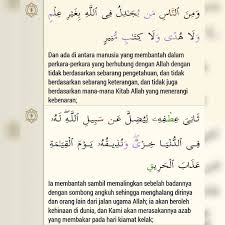 وَمِنَ ٱلنَّاسِ مَن يُجَـٰدِلُ فِى ٱللَّهِ بِغَيْرِ عِلْمٍ
وَلَا هُدًى وَلَا كِتَـٰبٍ مُّنِيرٍ
Dan ada di antara manusia yang membantah dalam
perkara-perkara yang berhubung dengan Allah dengan
tidak berdasarkan sebarang pengetahuan, dan tidak
berdasarkan sebarang keterangan, dan tidak juga
berdasarkan mana-mana Kitab Allah yang menerangi
kebenaran;
ثَانِىَ عِطْفِهِۦ لِيُضِلَّ عَن سَبِيلِ ٱللَّهِ ۖ لَهُۥ
فِى ٱلدُّنْيَا خِزْىٌ ۖ وَنُذِيقُهُۥ يَوْمَ ٱلْقِيَـٰمَةِ
عَذَابَ ٱلْحَرِيقِ
Ia membantah sambil memalingkan sebelah badannya
dengan sombong angkuh sehingga menghalang dirinya
dan orang lain dari jalan ugama Allah; ia akan beroleh
kehinaan di dunia, dan Kami akan merasakannya azab
yang membakar pada hari kiamat kelak;